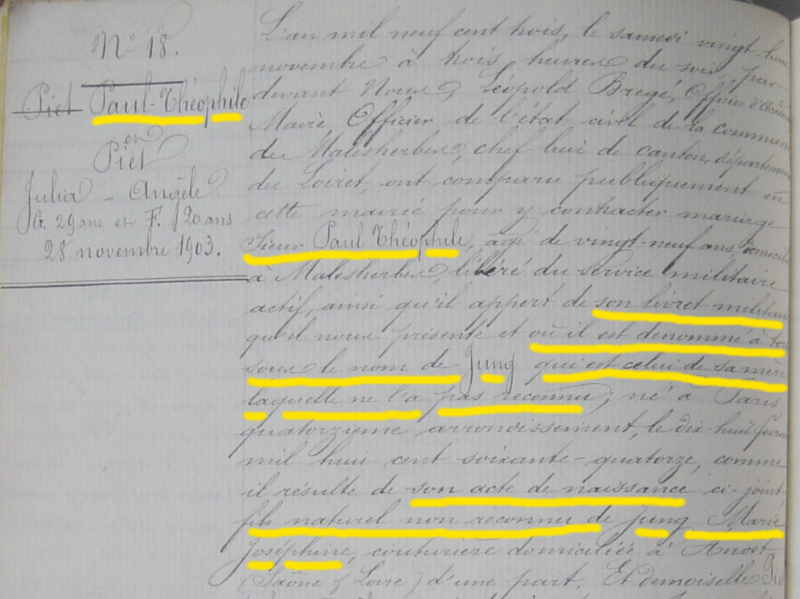 N° 18.
Piét Paul-Théophile
et
Piét
Julia - Angèle
G. 29 ans et F. 20 ans
28 novembre 1903.
L'an mil neuf cent trois, le samedi vingt-huit
novembre à trois heures du soir, par
devant Nous, Léopold Bregé, Officier d'Académie
Maire Officier de l'état civil de la commune
de Malesherbes, chef-lieu de canton, département
du Loiret, ont comparu publiquement en
cette mairie pour y contracter mariage
Sieur Paul Théophile, âgé de vingt-neuf ans, domicilié
à Malesherbes, libéré du service militaire
actif, ainsi qu'il appert de son livret militaire
qu'il nous présente et où il est dénommé à tort
sous le nom de Jung qui est celui de sa mère
laquelle ne l'a pas reconnu; né à Paris
quatorzième arrondissement, le dix-huit février
mil huit cent soixante-quatorze, comme
il résulte de son acte de naissance ci-joint
fils naturel non reconnu de Jung Marie
Joséphine, couturière domiciliée à Anost
(Saône & Loire) d'une part. Et demoiselle